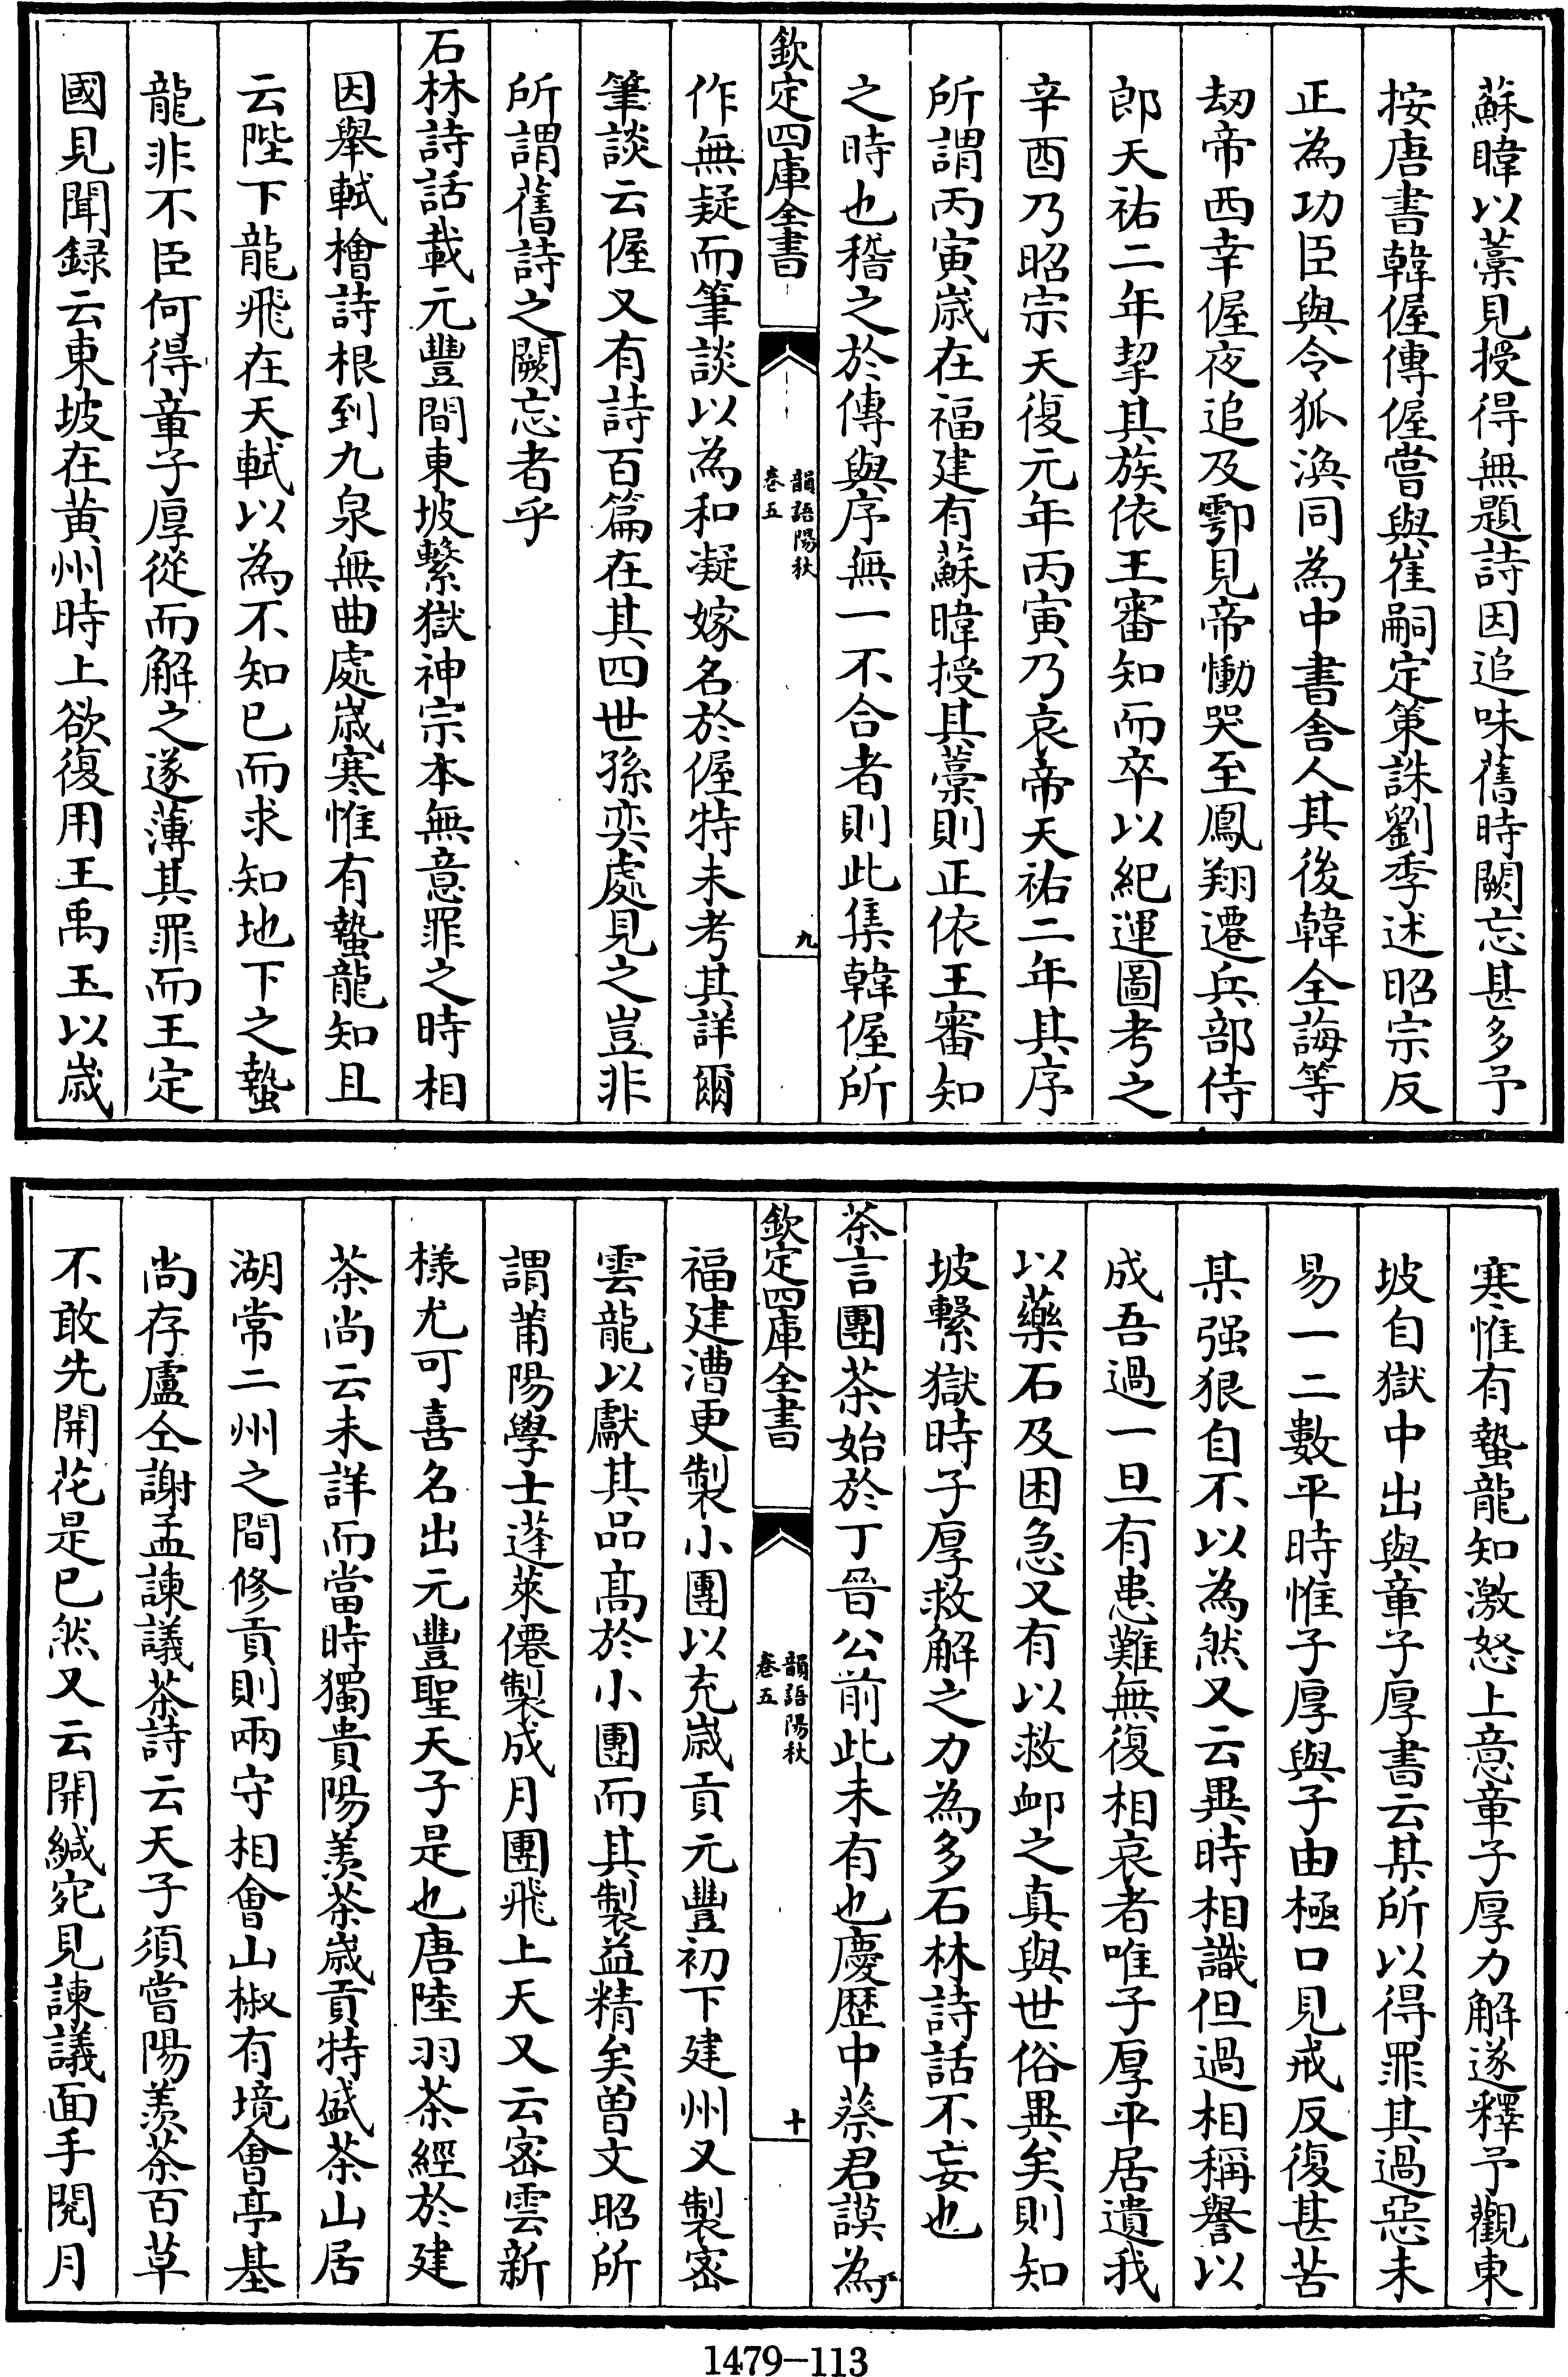 蘇暐以藁見授得無題詩因追味舊時闕忘甚多予
按唐書韓偓傳偓嘗與崔嗣定策誅劉季述昭宗反
正為功臣與令狐渙同為中書舍人其後韓全誨等
刼帝西幸偓夜追及鄠見帝慟哭至鳳翔遷兵部侍
郎天祐二年挈其族依王審知而卒以紀運圖考之
辛酉乃昭宗天復元年丙寅乃哀帝天祐二年其序
所謂丙寅歳在福建有蘇暐授其藁則正依王審知
之時也稽之於傳與序無一不合者則此集韓偓所
欽定四庫全書
韻語陽秋
卷五
九
作無疑而筆談以為和凝嫁名於偓特未考其詳爾
筆談云偓又有詩百篇在其四世孫奕處見之豈非
所謂舊詩之闕忘者乎
石林詩話載元豐間東坡繫獄神宗本無意罪之時相
因舉軾檜詩根到九泉無曲處歳寒惟有蟄龍知且
云陛下龍飛在天軾以為不知已而求知地下之蟄
龍非不臣何得章子厚從而解之遂薄其罪而王定
國見聞録云東坡在黄州時上欲復用王禹玉以歳
寒惟有蟄龍知激怒上意章子厚力解遂釋予觀東
坡自獄中出與章子厚書云某所以得罪其過惡未
易一二數平時惟子厚與子由極口見戒反復甚苦
某强狠自不以為然又云異時相識但過相稱譽以
成吾過一旦有患難無復相哀者唯子厚平居遺我
以藥石及困急又有以救卹之真與世俗異矣則知
坡繫獄時子厚救解之力為多石林詩話不妄也
茶言團茶始於丁晉公前此未有也慶歴中蔡君謨為
欽定四庫全書
韻語陽秋
卷五
十
福建漕更製小團以充歳貢元豐初下建州又製宻
雲龍以獻其品髙於小團而其製益精矣曽文昭所
謂莆陽學士蓬萊僊製成月團飛上天又云宻雲新
樣尤可喜名出元豐聖天子是也唐陸羽茶經於建
茶尚云未詳而當時獨貴陽羨茶歳貢特盛茶山居
湖常二州之間修貢則兩守相會山椒有境會亭基
尚存盧仝謝孟諫議茶詩云天子須嘗陽羨茶百草
不敢先開花是已然又云開緘宛見諫議面手閱月
1479-113